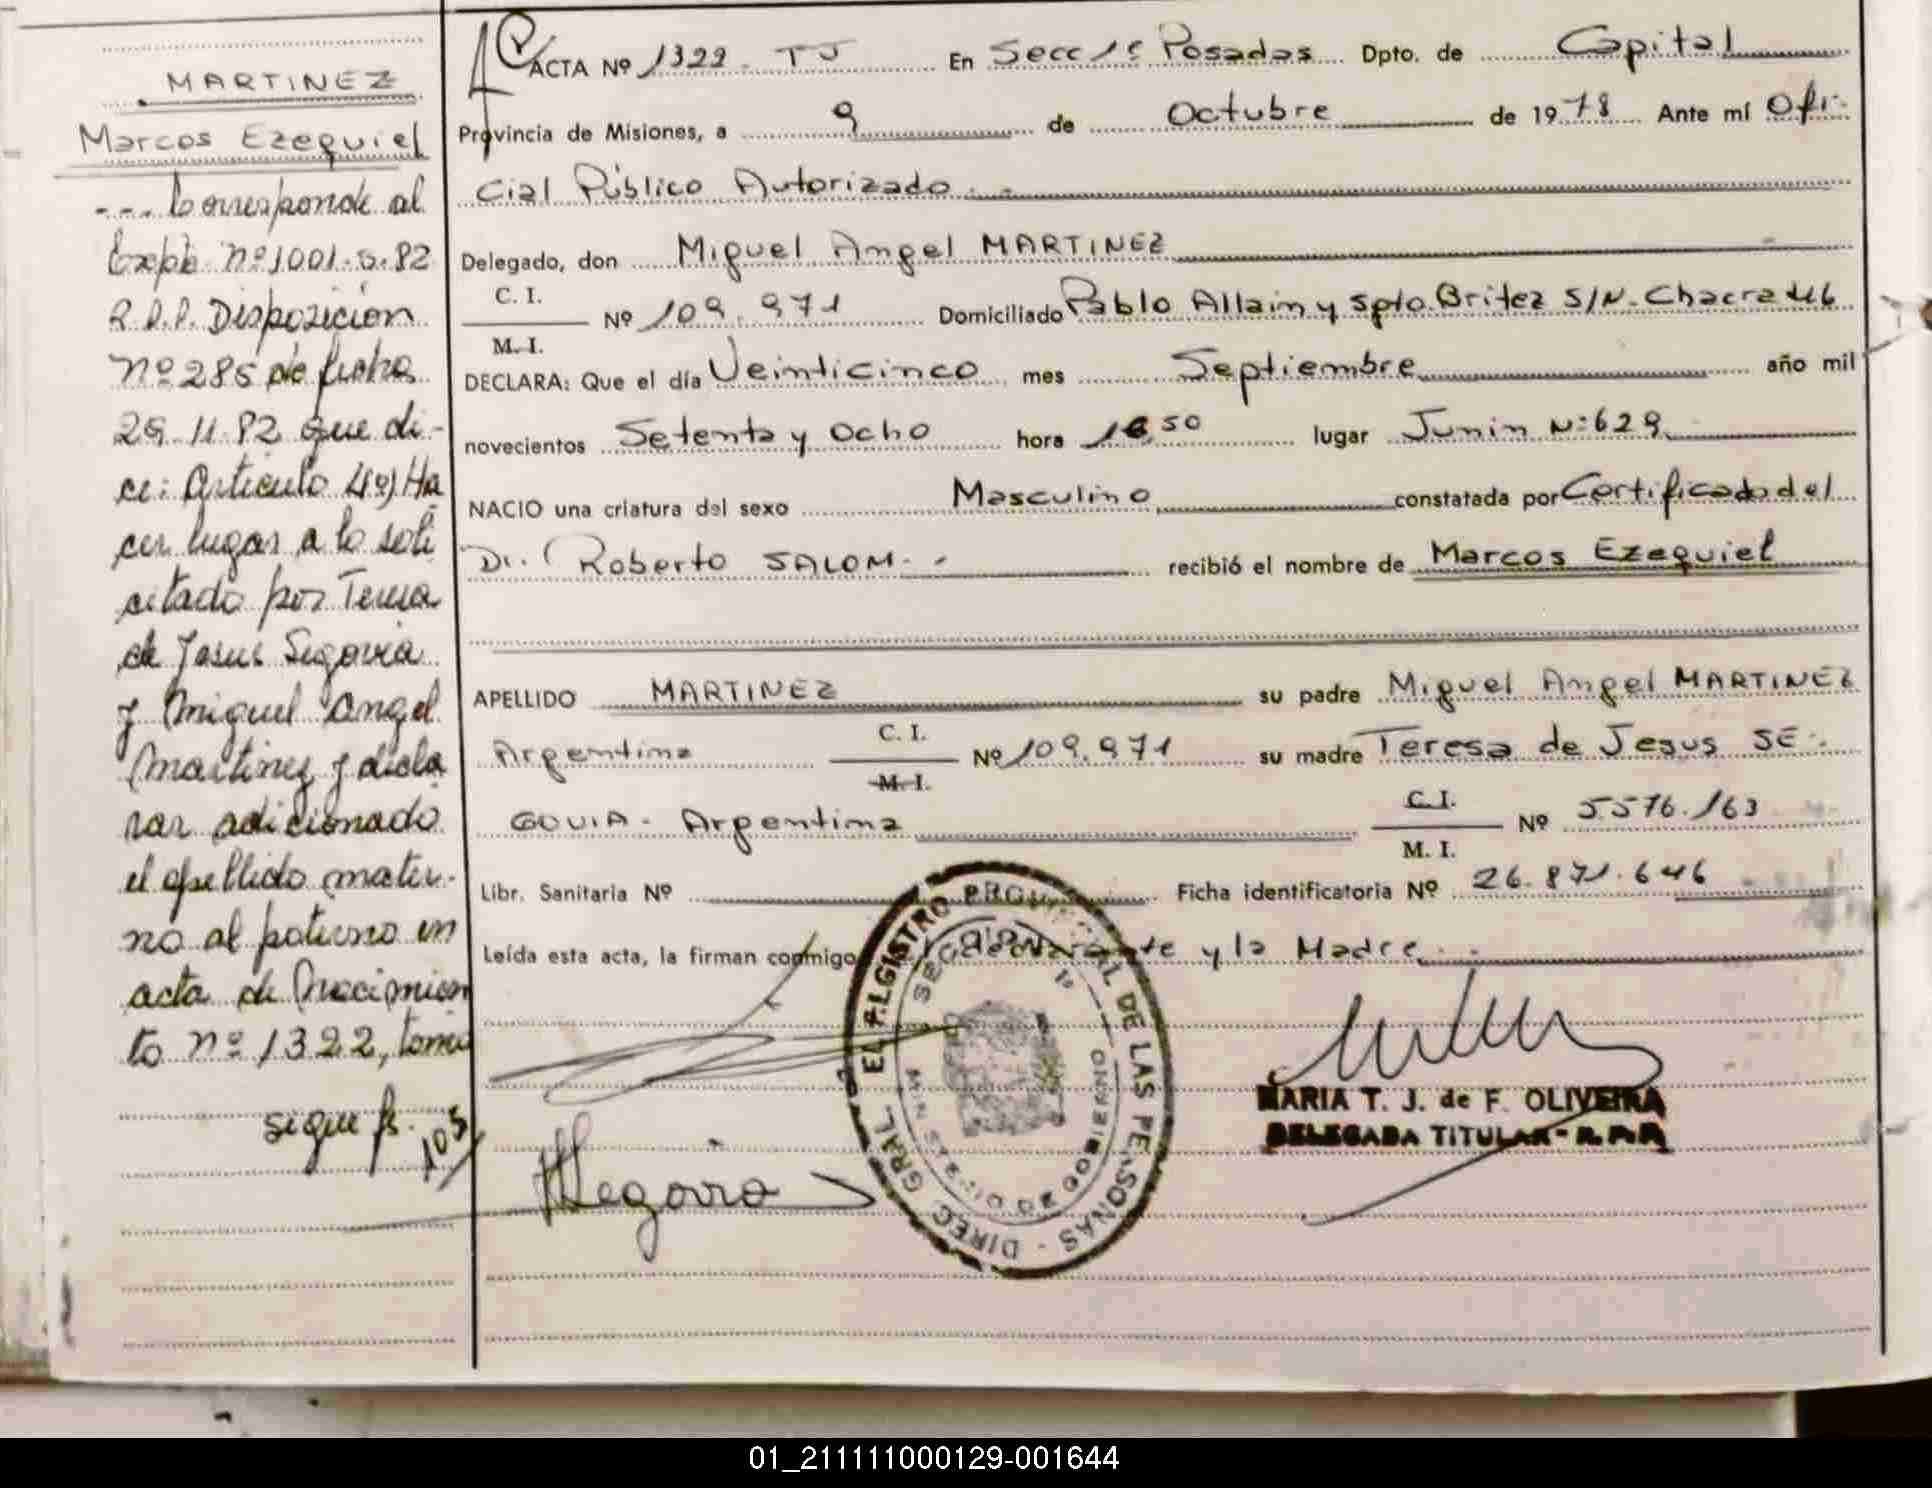 MARTINEZ
Marcos Ezequiel
--- Corresponde al
Expte nº 1001-S-82
R.P.P. Disposición
nº 285 de fecha
29-11-82 que di-
ce: Articulo 4º) Ha
cer lugar a lo soli
citado por Teresa
de Jesus Segovia
y Miguel Angel
Martinez y decla
rar adicionado
el apellido mater-
no al paterno en
acta de Nacimien
to nº 1322, tomo
sigue fs. 105
ACTA Nº 1322 - TJ En Secc 1º Posadas Dpto. de Capital
Provincia de Misiones, a 9 de Octubre de 1978 Ante mí Ofi-
cial Público Autorizado.-
Delegado, don Miguel Angel MARTINEZ
C. I.
M. I. Nº 109.971 Domiciliado Pablo Allain y Spto. Britez S/N. Chacra
DECLARA: Que el día Veinticinco mes Septiembre año mil
novecientos Setenta y Ocho hora 50 lugar Junin Nº 629
NACIO una criatura del sexo Masculino constatada por Certificado del
Dr. Roberto SALOM.- recibió el nombre de Marcos Ezequiel
APELLIDO MARTINEZ su padre Miguel Angel MARTINEZ
Argentino C. I. M. I. Nº 109.971 su madre Teresa de Jesus SE-
GOVIA - Argentina C. I. M. I. Nº 5.576.163
Libr. Sanitaria Nº Ficha identificatoria Nº 26.871.646
Leída esta acta, la firman conmigo, y la Madre.-
DIREC. GRAL. EL REGISTRO PROVINCIAL DE LAS PERSONAS
Segovia
MARIA T. J. de F. OLIVEIRA
DELEGADA TITULAR - R.P.P.
01_211111000129-001644